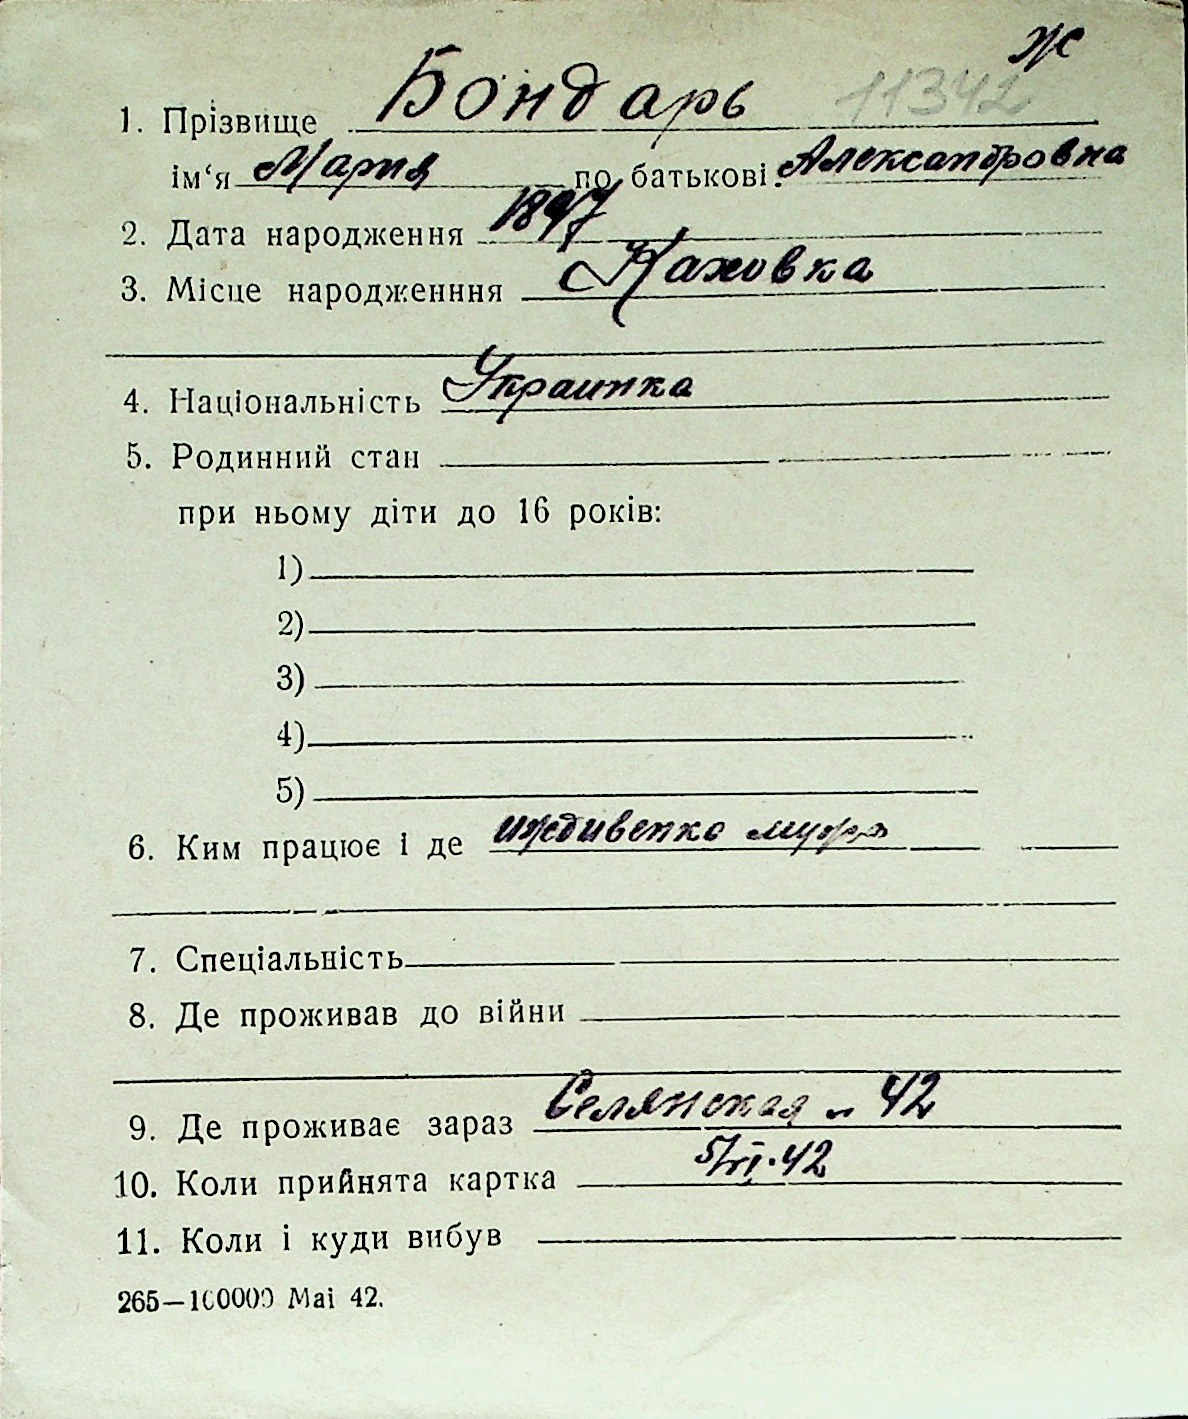 ж
11342
1. Прізвище Бондарь
ім‘я Мария по батькові. Александровна
2. Дата народження 1897
3. Місце народженння Каховка
4. Національність Украинка
5. Родинний стан
при ньому діти до 16 років:
1)
2)
3)
4)
5)
6. Ким працює і де иждивенка мужа
7. Спеціальність
8. Де проживав до війни
9. Де проживає зараз Селянская 42
10. Коли прийнята картка 5/VI.42
11. Коли і куди вибув
265—100000 Маі 42.